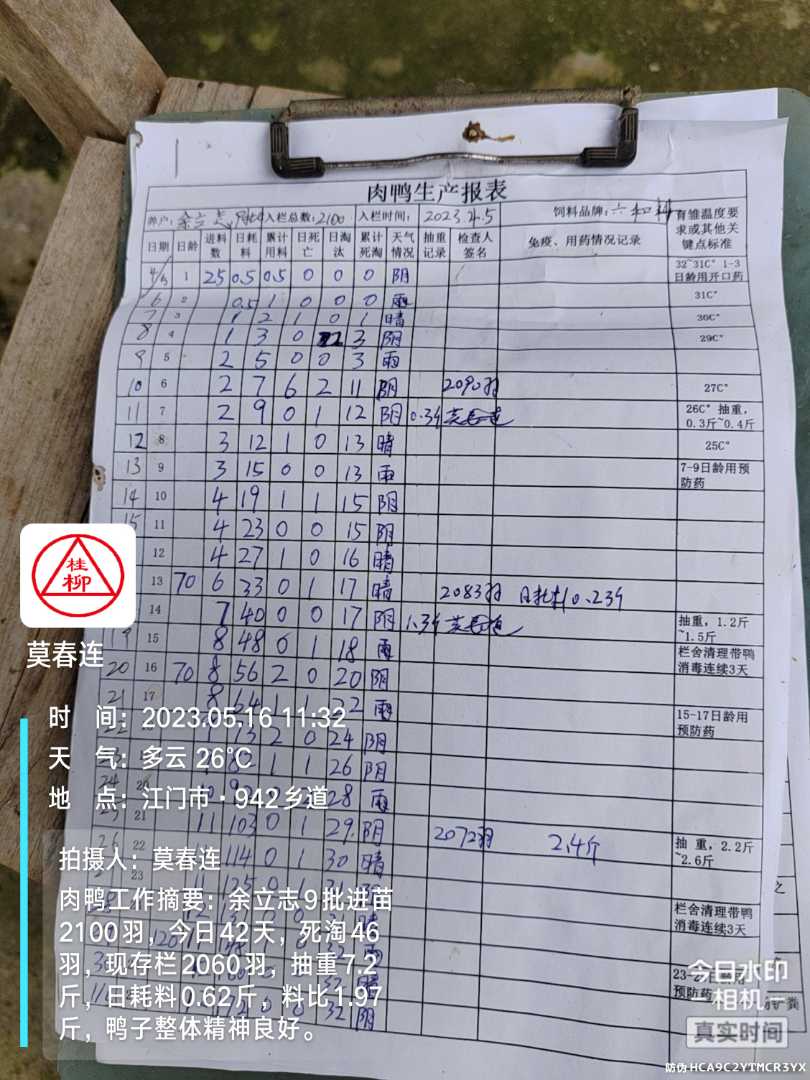 肉鸭生产报表
养户：余立志 入栏总数：2100 入栏时间：2023.4.5 饲料品牌：六和料
日期 日龄 进料数 日耗料 累计用料 日死亡 日淘汰 累计死淘 天气情况 抽重记录 检查人签名 免疫、用药情况记录 育雏温度要求或其他关键点标准
4/5 1 25 0.5 0.5 0 0 0 阴 32~31C° 1-3日龄用开口药
6 2 0.5 1 0 0 0 雨 31C°
7 3 1 2 1 0 1 晴 30C°
8 4 1 3 0 2 3 阴 29C°
9 5 2 5 0 0 3 雨
10 6 2 7 6 2 11 阴 2090羽 27C°
11 7 2 9 0 1 12 阴 0.3斤 莫春连 26C° 抽重，0.3斤~0.4斤
12 8 3 12 1 0 13 晴 25C°
13 9 3 15 0 0 13 雨 7-9日龄用预防药
14 10 4 19 1 1 15 阴
15 11 4 23 0 0 15 阴
12 4 27 1 0 16 晴
13 70 6 33 0 1 17 晴 2083羽 日耗料0.23斤
14 7 40 0 0 17 阴 1.3斤 莫春连 抽重，1.2斤~1.5斤
19 15 8 48 0 1 18 雨 栏舍清理带鸭消毒连续3天
20 16 70 8 56 2 0 20 阴
21 17 8 64 1 1 22 雨 15-17日龄用预防药
2 0 24 阴
1 1 26 阴
28 雨
21 11 103 0 1 29 阴 2072羽 2.4斤 抽重，2.2斤~2.6斤
26 22 114 0 1 30 晴
23 125 0
栏舍清理带鸭消毒连续3天
120
32 阴
桂柳
莫春连
时 间：2023.05.16 11:32
天 气：多云 26℃
地 点：江门市·942乡道
拍摄人：莫春连
肉鸭工作摘要：余立志9批进苗
2100羽，今日42天，死淘46
羽，现存栏2060羽，抽重7.2
斤，日耗料0.62斤，料比1.97
斤，鸭子整体精神良好。
今日水印
相机
真实时间
防伪 HCA9C2YTMCR3YX